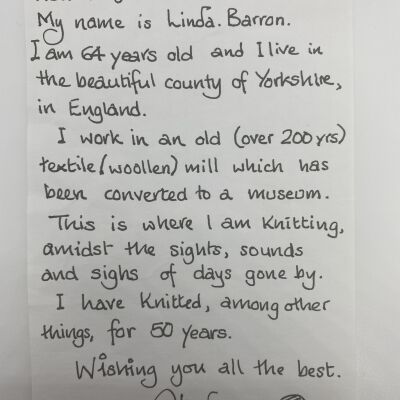 My name is Linda. Barron.
I am 64 years old and I live in
the beautiful county of Yorkshire,
in England.
I work in an old (over 200 yrs)
textile (woollen) mill which has
been converted to a museum.
This is where I am Knitting,
amidst the sights, sounds
and sighs of days gone by.
I have Knitted, among other
things, for 50 years.
Wishing you all the best.